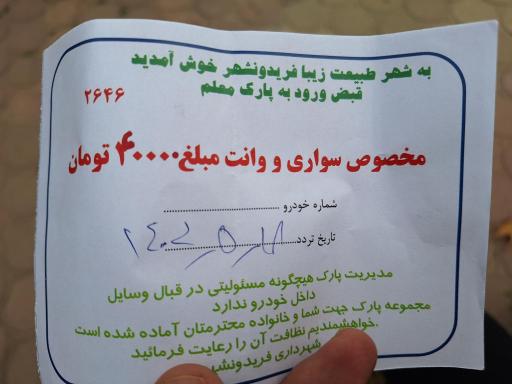 به شهر طبیعت زیبا فریدونشهر خوش آمدید
قبض ورود به پارک معلم
۲۶۴۶
مخصوص سواری و وانت مبلغ ۴۰۰۰۰ تومان
شماره خودرو
تاریخ تردد
مدیریت پارک هیچگونه مسئولیتی در قبال وسایل
داخل خودرو ندارد
مجموعه پارک جهت شما و خانواده محترمتان آماده شده است
خواهشمندیم نظافت آن را رعایت فرمائید.
شهرداری